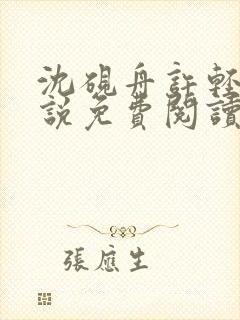 沈硯舟許輕
說免費閱讀
張應生